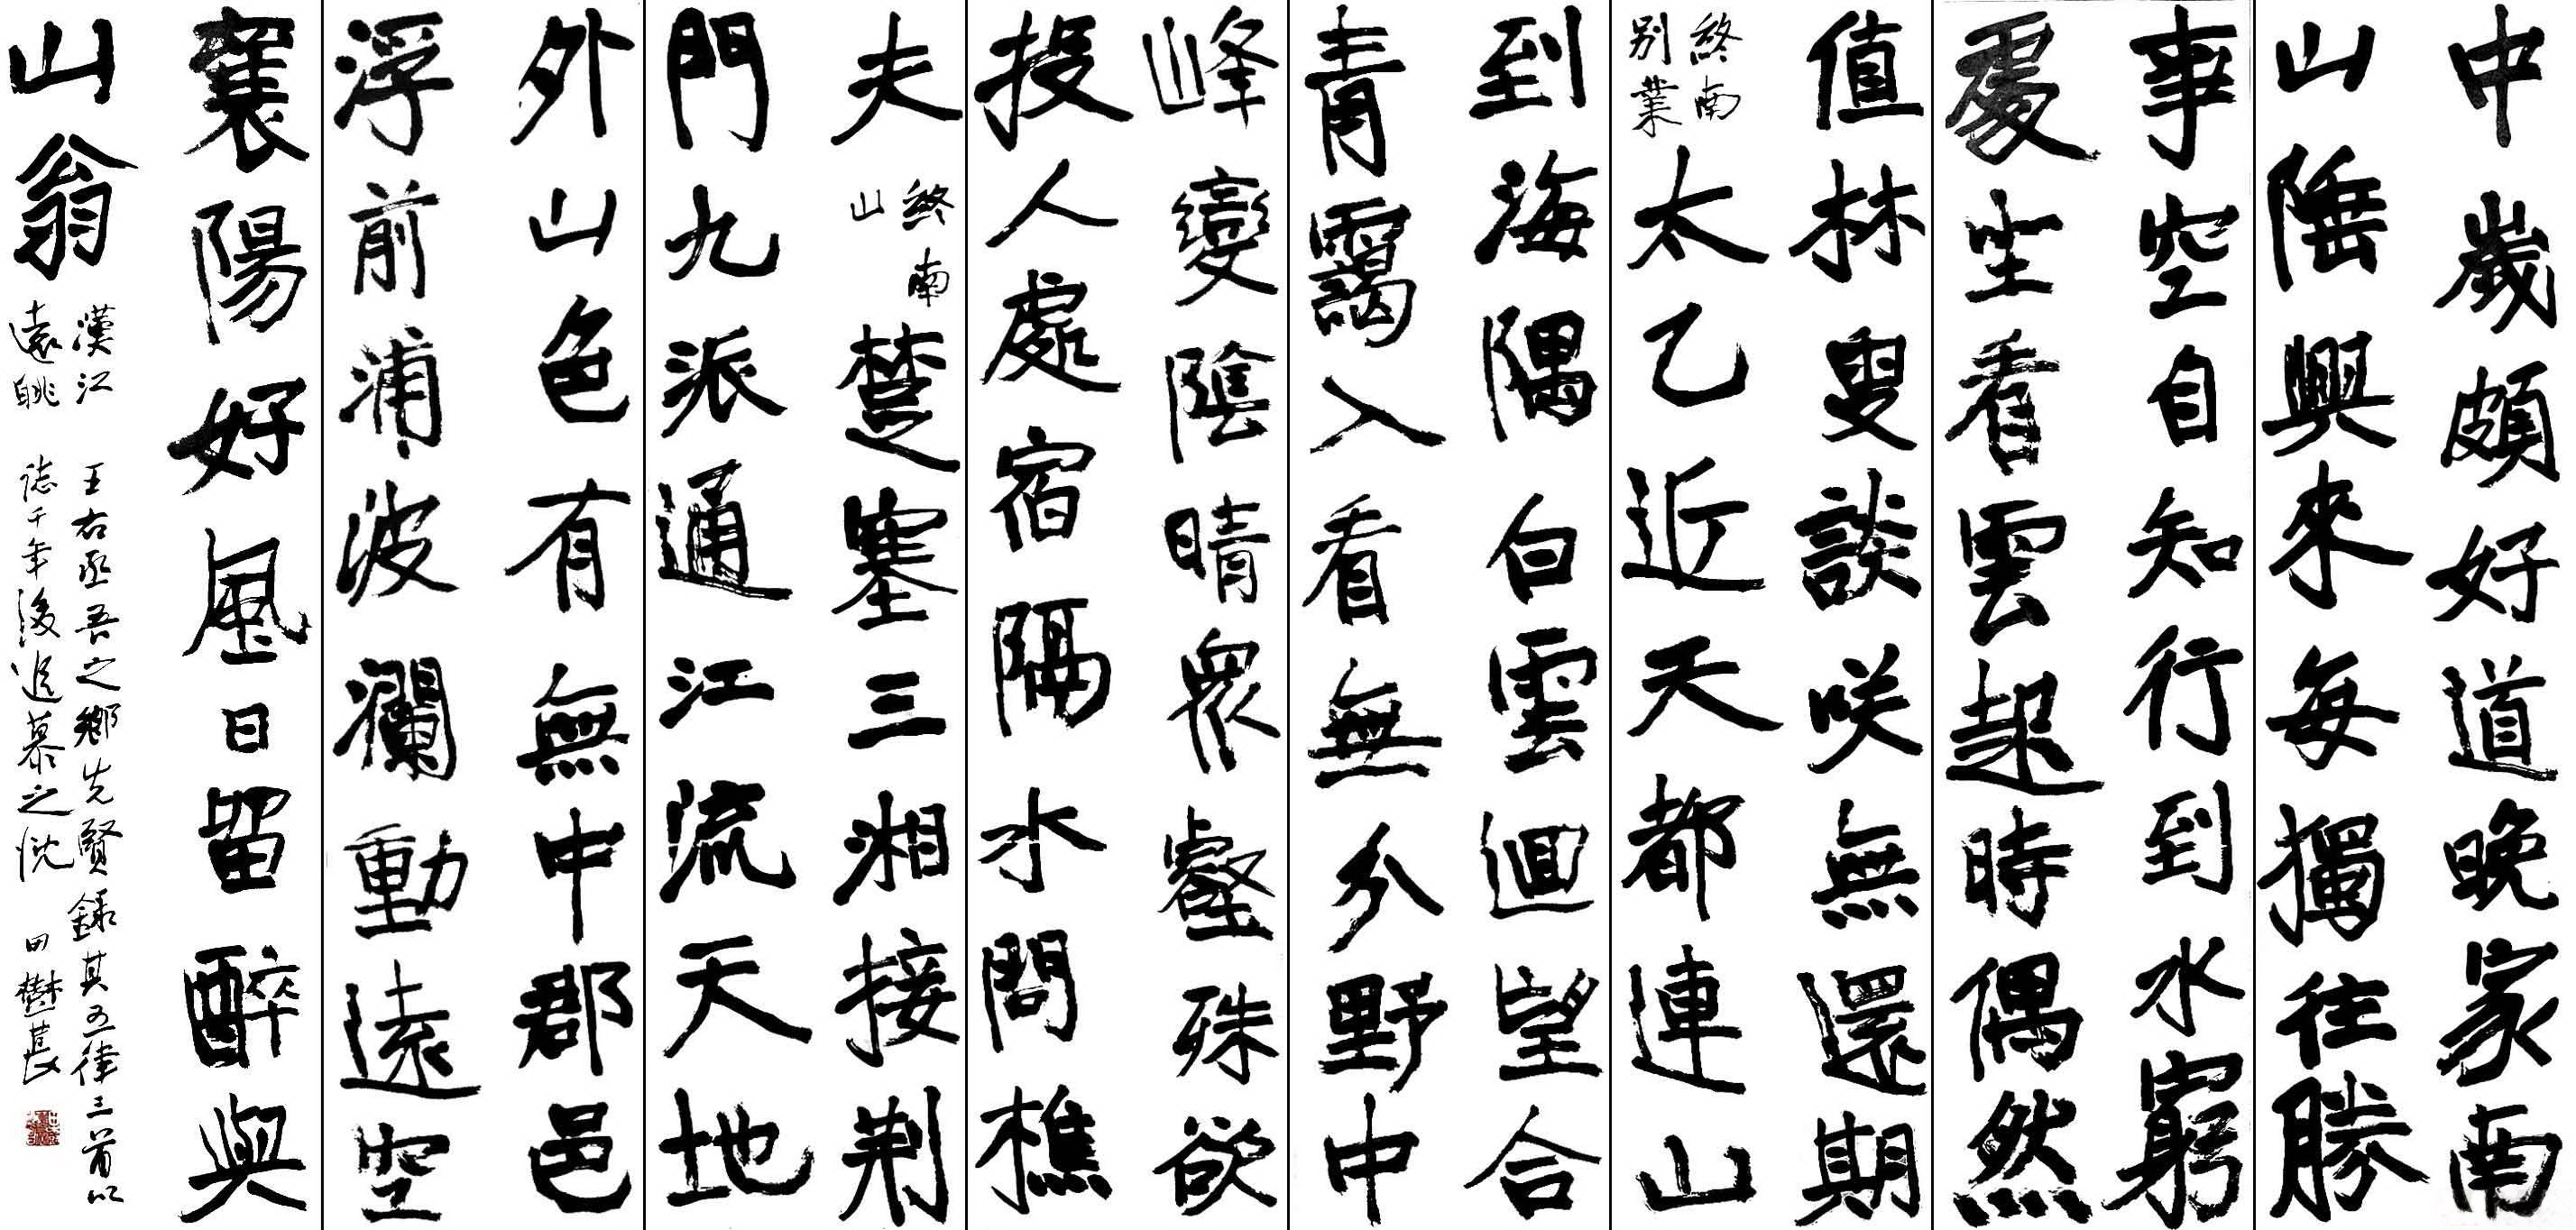 中歲頗好道晚家南
山陲興來每獨往勝
事空自知行到水窮
處坐看雲起時偶然
值林叟談咲無還期
終南
別業
太乙近天都連山
到海隅白雲迴望合
青靄入看無分野中
峰變陰晴眾壑殊欲
投人處宿隔水問樵
夫
終南
山
楚塞三湘接荆
門九派通江流天地
外山色有無中郡邑
浮前浦波瀾動遠空
襄陽好風日留醉與
山翁
漢江
遠眺
王右丞吾之鄉先賢錄其五律三首以
誌千年後追慕之忱 田樹萇